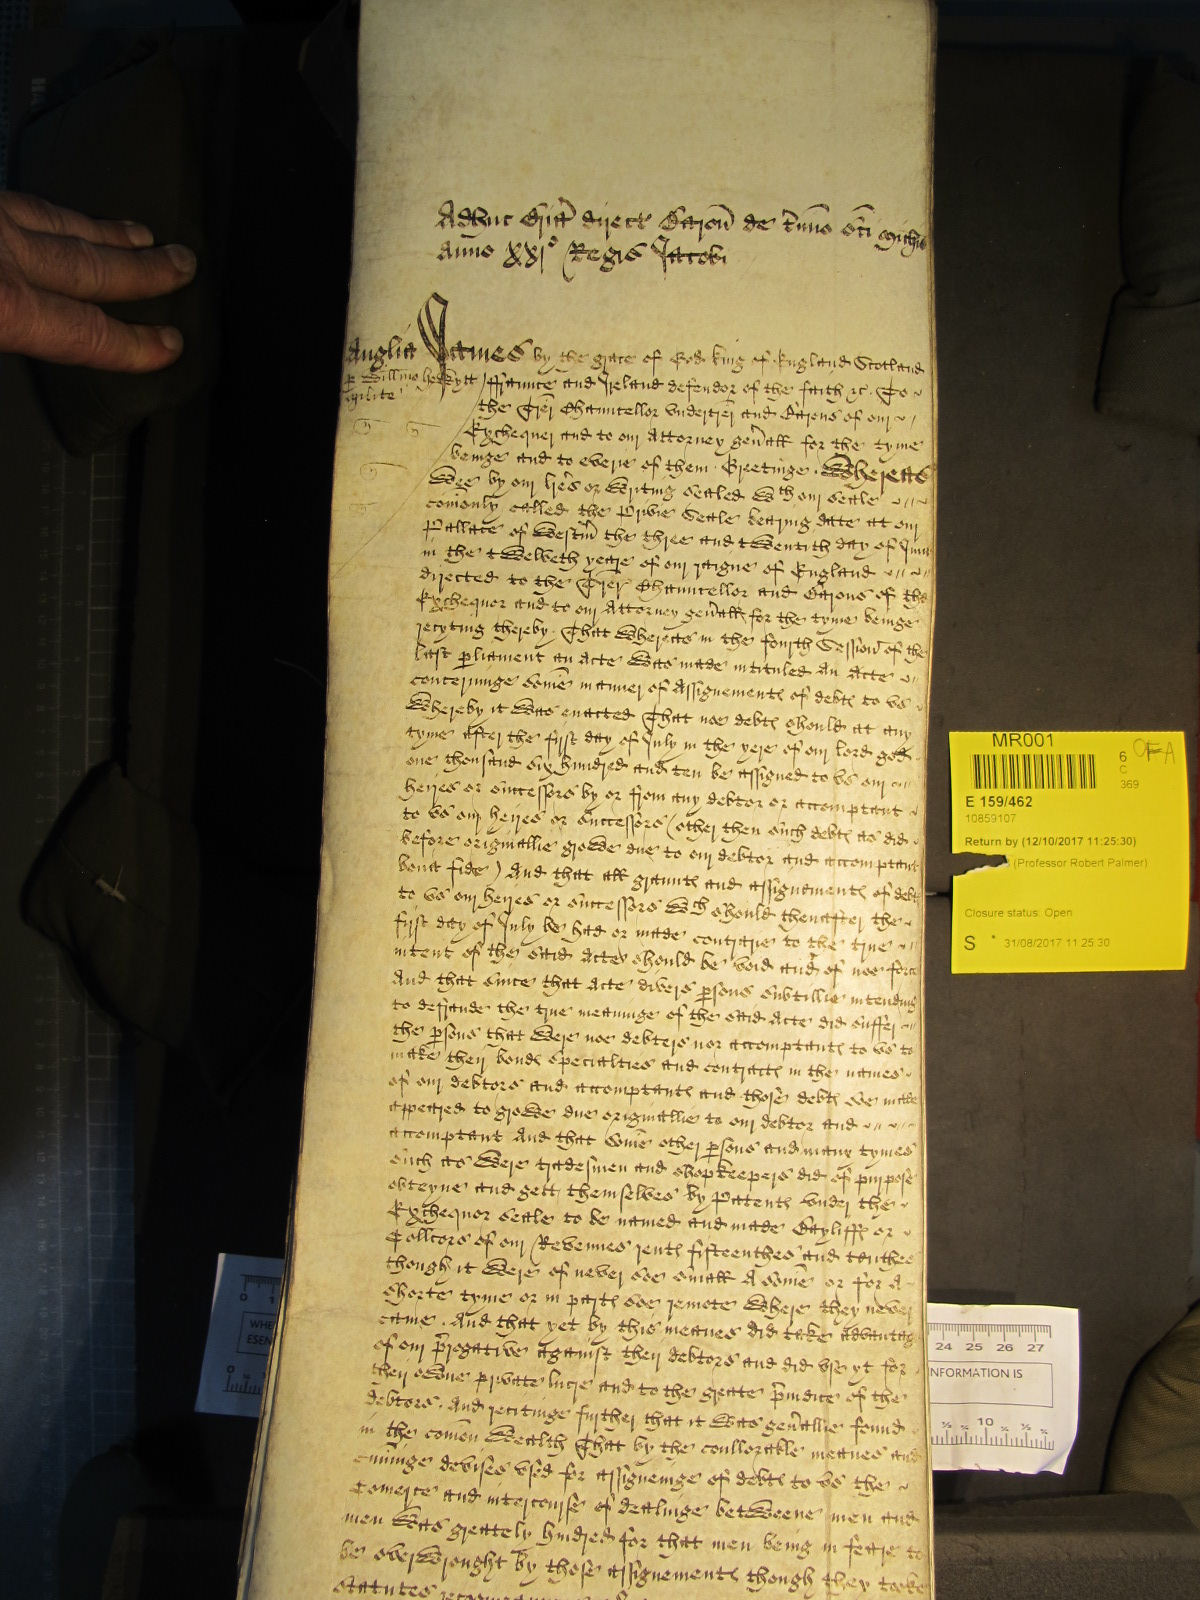 Adhuc Bria direct Baron de termino Sci Michis
Anno XXI° Regis Jacobi
Anglia James by the grace of God king of England Scotland
ffraunce and Ireland defendor of the faith &c. To
the Trer Chauncellor undertrer and Barons of our
Exchequer and to our Attorney genall for the tyme
beinge and to everie of them Greetinge. Whereas
Wee by our lres or writing sealed wth our seale
comonly called the privie Seale bearing date at our
Pallace of Westm the three and twentith day of June
in the twelveth yeare of our raigne of England
directed to the Trer Chauncellor and Barons of the
Exchequor and to our Attorney genall for the tyme beinge
recyting thereby. That whereas in the fourth Session of the
last pliament an Acte was made intituled An Acte
concerninge some manner of Assignements of debts to us
Whereby it was enacted That noe debts should at any
tyme after the first day of July in the yere of our lord god
one thousand six hundred and ten be assigned to us our
heires or successors by or from any debtor or accomptant
to us our heires or successors (other then such debts as did
before originallie growe due to our debtor and accomptant
bona fide) And that all graunts and assignements of debts
to us our heires or successors wch should thenafter the
first day of July be had or made contrarie to the true
intent of the said Acte should be void and of noe force
And that since that Acte divers psons subtillie intending
to defraude the true meaninge of the said Acte did suffer
the psons that were noe debters nor accomptants to us to
make their bonds specialties and contracts in the names
of our debtors and accomptants and those debts soe made
appeared to growe due originallie to our debtor and
accomptant And that some other psons and many tymes
such as were tradesmen and shopkeepers did of purpose
obteyne and gett themselves by Patents under the
Exchequor seale to be named and made Bayliffs or
Collcors of our Revenues rents fifteenthes and tenthes
though it were of never soe small A some or for A
shorte tyme or in parts soe remote where they never
came. And that yet by this meanes did take advantage
of our progative against their debtors and did use yt for
their owne private lucre and to the greate priudice of the
debtors. And recitinge further that it was genallie found
in the comon wealth That by the coullorable meanes and
cuninge devises used for assigneinge of debts to us the
Comerce and intercourse of dealinge betweene men and
men was greately hindred for that men being in feare to
be overwrought by those assignements though they tooke
statutes
MR001
6
C
369
E 159/462
10859107
Return by (12/10/2017 11:25:30)
(Professor Robert Palmer)
Closure status: Open
S 31/08/2017 11:25:30
24 25 26 27
INFORMATION IS
10
0 1
WHE
ESEN
0